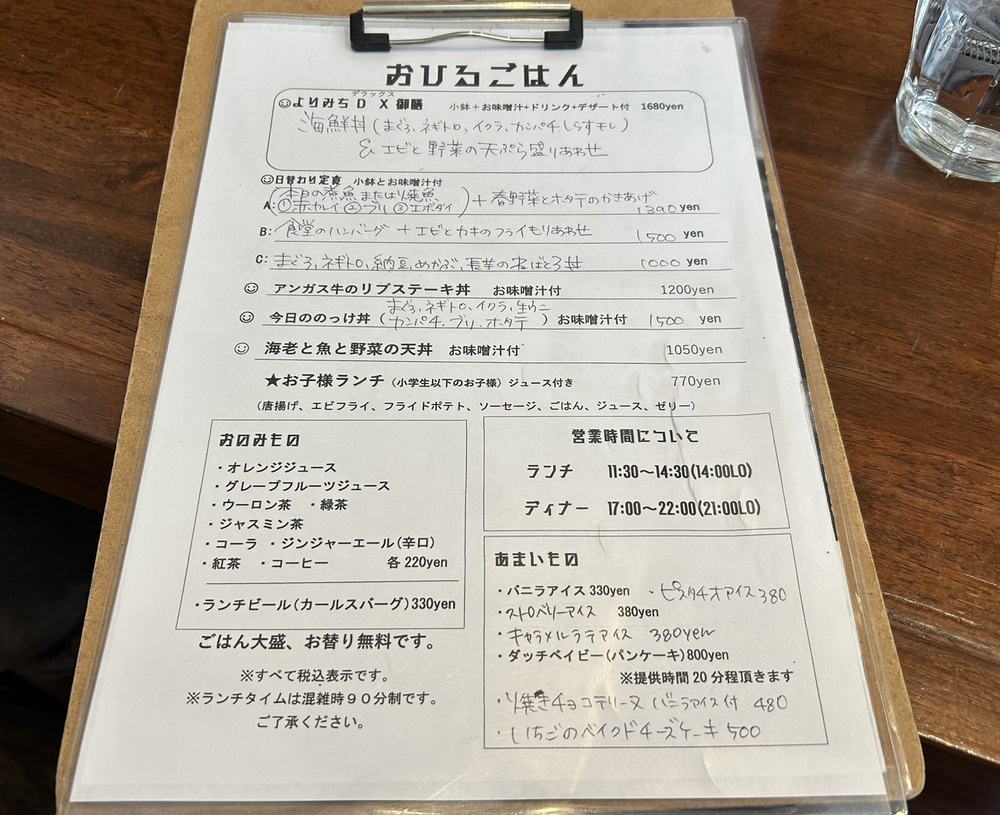 おひるごはん
デラックス
よりみちDX御膳 小鉢+お味噌汁+ドリンク+デザート付 1680yen
海鮮丼(まぐろ、ネギトロ、イクラ、カンパチ、しらすモレ)
& エビと野菜の天ぷら盛りあわせ
日替わり定食 小鉢とお味噌汁付
A: (本日の煮魚または焼魚 ①赤カレイ ②ブリ ③エボダイ) + 春野菜とホタテのかきあげ 1390 yen
B: 食堂のハンバーグ + エビとカキのフライもりあわせ 1500 yen
C: まぐろ、ネギトロ、納豆、めかぶ、長芋のねばとろ丼 1000 yen
アンガス牛のリブステーキ丼 お味噌汁付 1200yen
今日ののっけ丼 (まぐろ、ネギトロ、イクラ、生ウニ カンパチ、ブリ、ホタテ) お味噌汁付 1500 yen
海老と魚と野菜の天丼 お味噌汁付 1050yen
★お子様ランチ (小学生以下のお子様) ジュース付き 770yen
(唐揚げ、エビフライ、フライドポテト、ソーセージ、ごはん、ジュース、ゼリー)
おのみもの
・オレンジジュース
・グレープフルーツジュース
・ウーロン茶 ・緑茶
・ジャスミン茶
・コーラ ・ジンジャーエール(辛口)
・紅茶 ・コーヒー 各220yen
・ランチビール(カールスバーグ)330yen
ごはん大盛、お替り無料です。
※すべて税込表示です。
※ランチタイムは混雑時90分制です。
ご了承ください。
営業時間について
ランチ 11:30~14:30(14:00LO)
ディナー 17:00~22:00(21:00LO)
あまいもの
・バニラアイス 330yen ・ピスタチオアイス 380
・ストロベリーアイス 380yen
・キャラメルラテアイス 380yen
・ダッチベイビー(パンケーキ)800yen
※提供時間20分程頂きます
・焼きチョコテリーヌ バニラアイス付 480
・いちごのベイクドチーズケーキ 500